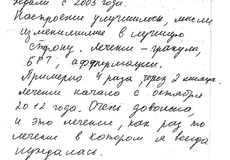 недали с 2003 года.
Настроение улучшилось, мысли
изменились в лучшую
сторону. лечение - гранулы,
БРТ, аффирмации.
Примерно 4 раза через 2 месяца.
лечение начато с октября
2012 года. Очень довольна,
и это лечение, как раз то
лечение в котором я всегда
нуждалась.